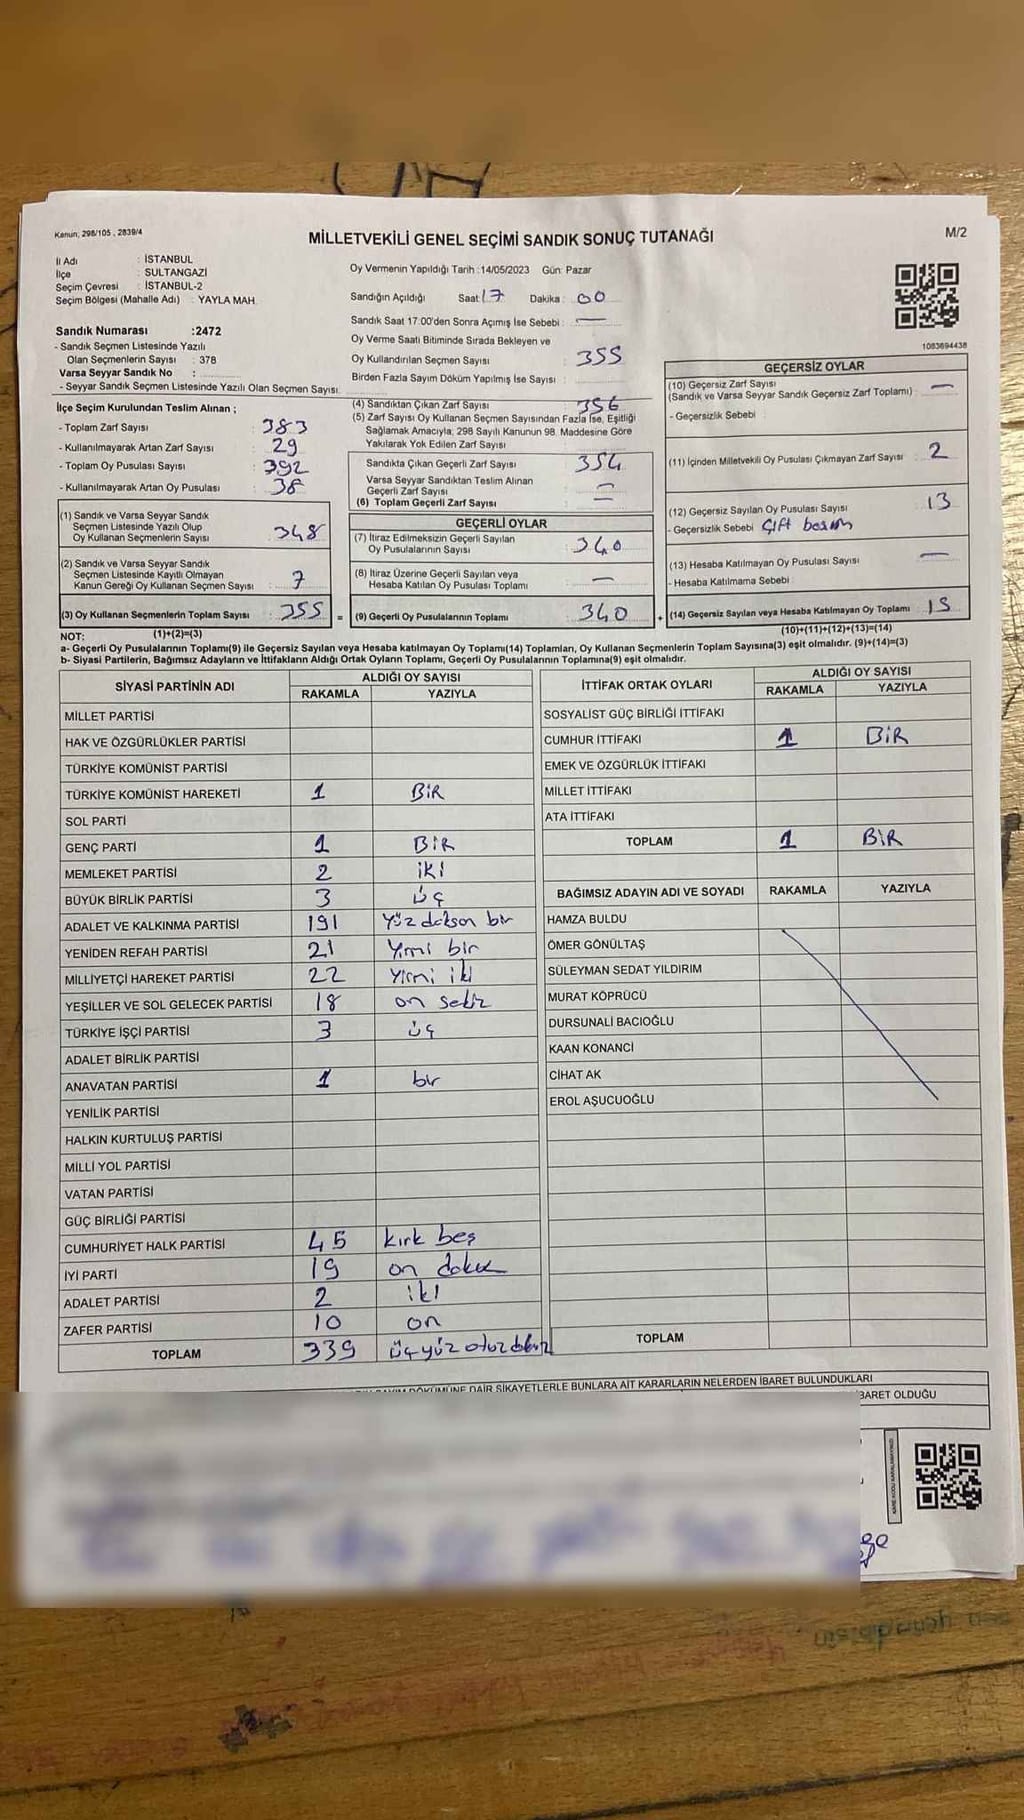 Kanun; 298/105 , 2839/4
MİLLETVEKİLİ GENEL SEÇİMİ SANDIK SONUÇ TUTANAĞI
M/2
İl Adı : İSTANBUL
İlçe : SULTANGAZİ
Seçim Çevresi : İSTANBUL-2
Seçim Bölgesi (Mahalle Adı) : YAYLA MAH.
Sandık Numarası :2472
- Sandık Seçmen Listesinde Yazılı
Olan Seçmenlerin Sayısı : 378
Varsa Seyyar Sandık No :
- Seyyar Sandık Seçmen Listesinde Yazılı Olan Seçmen Sayısı:
Oy Vermenin Yapıldığı Tarih :14/05/2023 Gün: Pazar
Sandığın Açıldığı Saat: 17 Dakika : 00
Sandık Saat 17:00'den Sonra Açımış İse Sebebi : —
Oy Verme Saati Bitiminde Sırada Bekleyen ve
Oy Kullandırılan Seçmen Sayısı : 355
Birden Fazla Sayım Döküm Yapılmış İse Sayısı :
1083694438
İlçe Seçim Kurulundan Teslim Alınan ;
- Toplam Zarf Sayısı : 383
- Kullanılmayarak Artan Zarf Sayısı : 29
- Toplam Oy Pusulası Sayısı : 392
- Kullanılmayarak Artan Oy Pusulası : 38
(1) Sandık ve Varsa Seyyar Sandık
Seçmen Listesinde Yazılı Olup
Oy Kullanan Seçmenlerin Sayısı : 348
(2) Sandık ve Varsa Seyyar Sandık
Seçmen Listesinde Kayıtlı Olmayan
Kanun Gereği Oy Kullanan Seçmen Sayısı : 7
(3) Oy Kullanan Seçmenlerin Toplam Sayısı : 355 =
(4) Sandıktan Çıkan Zarf Sayısı : 356
(5) Zarf Sayısı Oy Kullanan Seçmen Sayısından Fazla İse, Eşitliği
Sağlamak Amacıyla, 298 Sayılı Kanunun 98. Maddesine Göre
Yakılarak Yok Edilen Zarf Sayısı :
Sandıkta Çıkan Geçerli Zarf Sayısı : 354
Varsa Seyyar Sandıktan Teslim Alınan
Geçerli Zarf Sayısı : —
(6) Toplam Geçerli Zarf Sayısı : —
GEÇERLİ OYLAR
(7) İtiraz Edilmeksizin Geçerli Sayılan
Oy Pusulalarının Sayısı : 340
(8) İtiraz Üzerine Geçerli Sayılan veya
Hesaba Katılan Oy Pusulası Toplamı : —
(9) Geçerli Oy Pusulalarının Toplamı : 340 +
GEÇERSİZ OYLAR
(10) Geçersiz Zarf Sayısı
(Sandık ve Varsa Seyyar Sandık Geçersiz Zarf Toplamı) : —
- Geçersizlik Sebebi :
(11) İçinden Milletvekili Oy Pusulası Çıkmayan Zarf Sayısı : 2
(12) Geçersiz Sayılan Oy Pusulası Sayısı : 13
- Geçersizlik Sebebi : Çift basım
(13) Hesaba Katılmayan Oy Pusulası Sayısı : —
- Hesaba Katılmama Sebebi :
(14) Geçersiz Sayılan veya Hesaba Katılmayan Oy Toplamı : 15
NOT: (1)+(2)=(3)
(10)+(11)+(12)+(13)=(14)
a- Geçerli Oy Pusulalarının Toplamı(9) ile Geçersiz Sayılan veya Hesaba katılmayan Oy Toplamı(14) Toplamları, Oy Kullanan Seçmenlerin Toplam Sayısına(3) eşit olmalıdır. (9)+(14)=(3)
b- Siyasi Partilerin, Bağımsız Adayların ve İttifakların Aldığı Ortak Oyların Toplamı, Geçerli Oy Pusulalarının Toplamına(9) eşit olmalıdır.
SİYASİ PARTİNİN ADI
ALDIĞI OY SAYISI
RAKAMLA YAZIYLA
MİLLET PARTİSİ
HAK VE ÖZGÜRLÜKLER PARTİSİ
TÜRKİYE KOMÜNİST PARTİSİ
TÜRKİYE KOMÜNİST HAREKETİ 1 BİR
SOL PARTİ
GENÇ PARTİ 1 BİR
MEMLEKET PARTİSİ 2 iki
BÜYÜK BİRLİK PARTİSİ 3 üç
ADALET VE KALKINMA PARTİSİ 191 Yüz doksan bir
YENİDEN REFAH PARTİSİ 21 Yirmi bir
MİLLİYETÇİ HAREKET PARTİSİ 22 Yirmi iki
YEŞİLLER VE SOL GELECEK PARTİSİ 18 on sekiz
TÜRKİYE İŞÇİ PARTİSİ 3 üç
ADALET BİRLİK PARTİSİ
ANAVATAN PARTİSİ 1 bir
YENİLİK PARTİSİ
HALKIN KURTULUŞ PARTİSİ
MİLLİ YOL PARTİSİ
VATAN PARTİSİ
GÜÇ BİRLİĞİ PARTİSİ
CUMHURİYET HALK PARTİSİ 45 kırk beş
İYİ PARTİ 19 on dokuz
ADALET PARTİSİ 2 iki
ZAFER PARTİSİ 10 on
TOPLAM 339 üçyüz otuz dokuz
İTTİFAK ORTAK OYLARI
ALDIĞI OY SAYISI
RAKAMLA YAZIYLA
SOSYALİST GÜÇ BİRLİĞİ İTTİFAKI
CUMHUR İTTİFAKI 1 BİR
EMEK VE ÖZGÜRLÜK İTTİFAKI
MİLLET İTTİFAKI
ATA İTTİFAKI
TOPLAM 1 BİR
BAĞIMSIZ ADAYIN ADI VE SOYADI RAKAMLA YAZIYLA
HAMZA BULDU
ÖMER GÖNÜLTAŞ
SÜLEYMAN SEDAT YILDIRIM
MURAT KÖPRÜCÜ
DURSUNALİ BACIOĞLU
KAAN KONANCİ
CİHAT AK
EROL AŞUCUOĞLU
TOPLAM
DÖKÜMÜNE DAİR ŞİKAYETLERLE BUNLARA AİT KARARLARIN NELERDEN İBARET BULUNDUKLARI
İBARET OLDUĞU